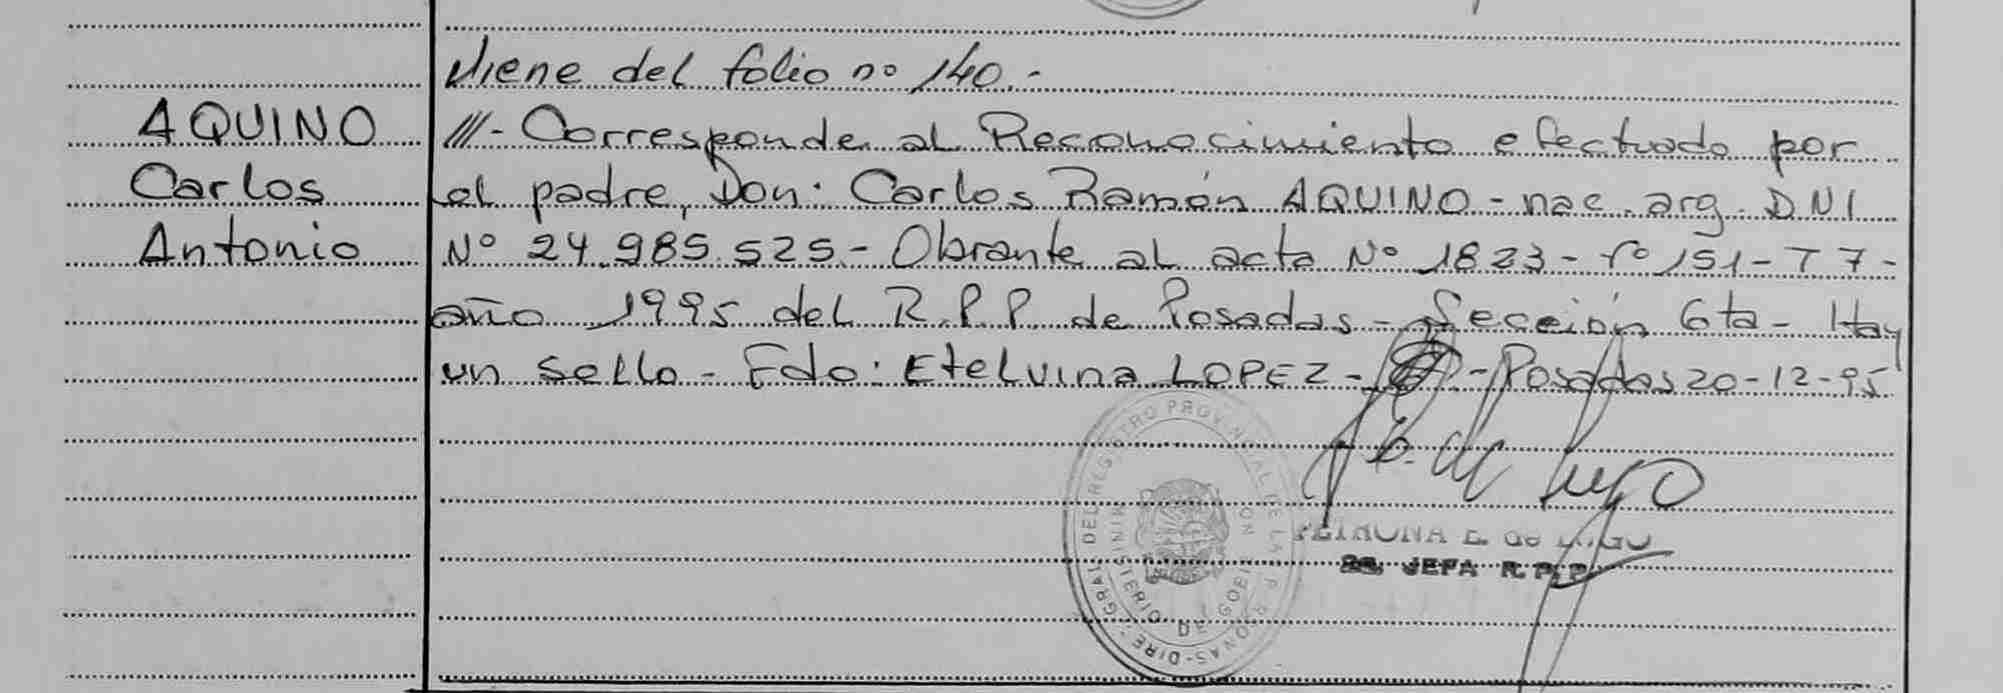 Viene del folio nº 140.-
AQUINO
Carlos
Antonio
///- Corresponde al Reconocimiento efectuado por
el padre, Don: Carlos Ramón AQUINO - nac. arg. DNI
Nº 24.985.525.- Obrante al acta Nº 1823 - Fº 151 - T 7 -
año 1995 del R.P.P de Posadas - Sección 6ta - Hay
un sello - Fdo: Etelvina LOPEZ - - Posadas 20-12-95
DIRE.. GRAL DEL REGISTRO PROVINCIAL DE LA P. PERSONAS
MINISTERIO DE GOBI
PETRONA E. de LUGO
JEFA R.P.P